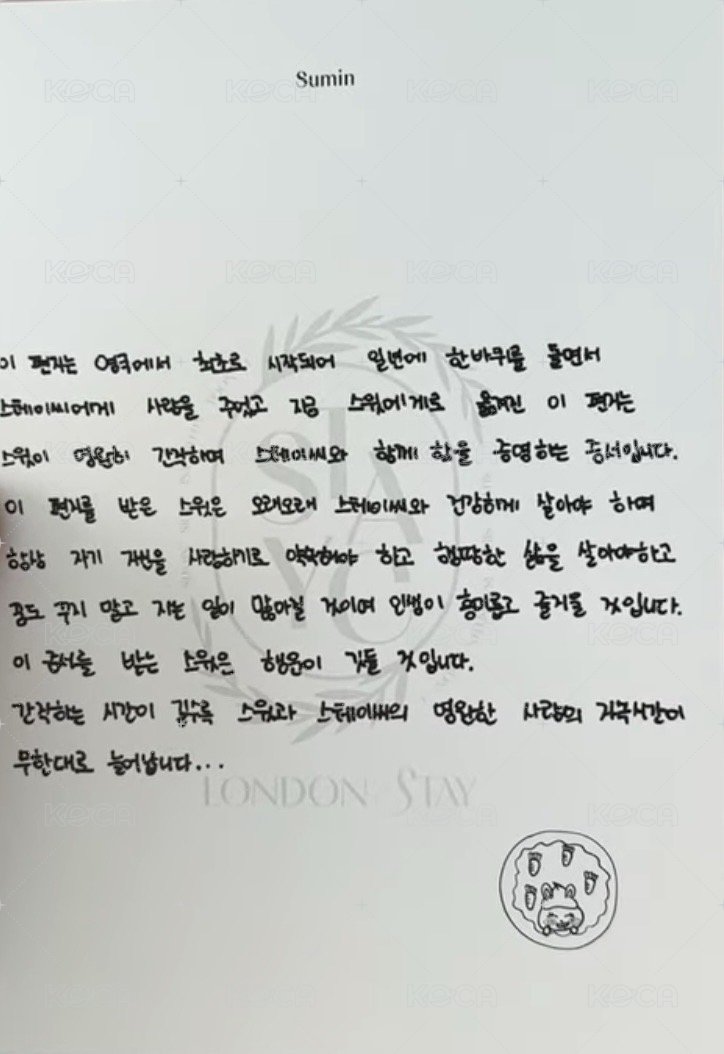 Sumin
이 편지는 영국에서 최초로 시작되어 일년에 한바퀴를 돌면서
스테이씨에게 사랑을 주었고 지금 스윗에게로 옮겨진 이 편지는
스윗이 영원히 간직하며 스테이씨와 함께 함을 증명하는 증서입니다.
이 편지를 받은 스윗은 오래오래 스테이씨와 건강하게 살아야 하며
항상 자기 자신을 사랑하기로 약속해야 하고 행복한 삶을 살아야하고
꿈도 꾸지 말고 자는 일이 많아질 것이며 인생이 흥미롭고 즐거울 것입니다.
이 증서를 받는 스윗은 행운이 깃들 것입니다.
간직하는 시간이 길수록 스윗과 스테이씨의 영원한 사랑의 지속시간이
무한대로 늘어납니다...
STAYC
LONDON STAY